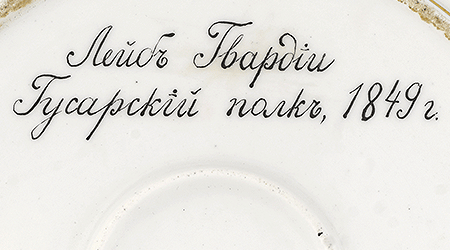 Лейбъ Гвардіи
Гусарскій полкъ, 1849 г.